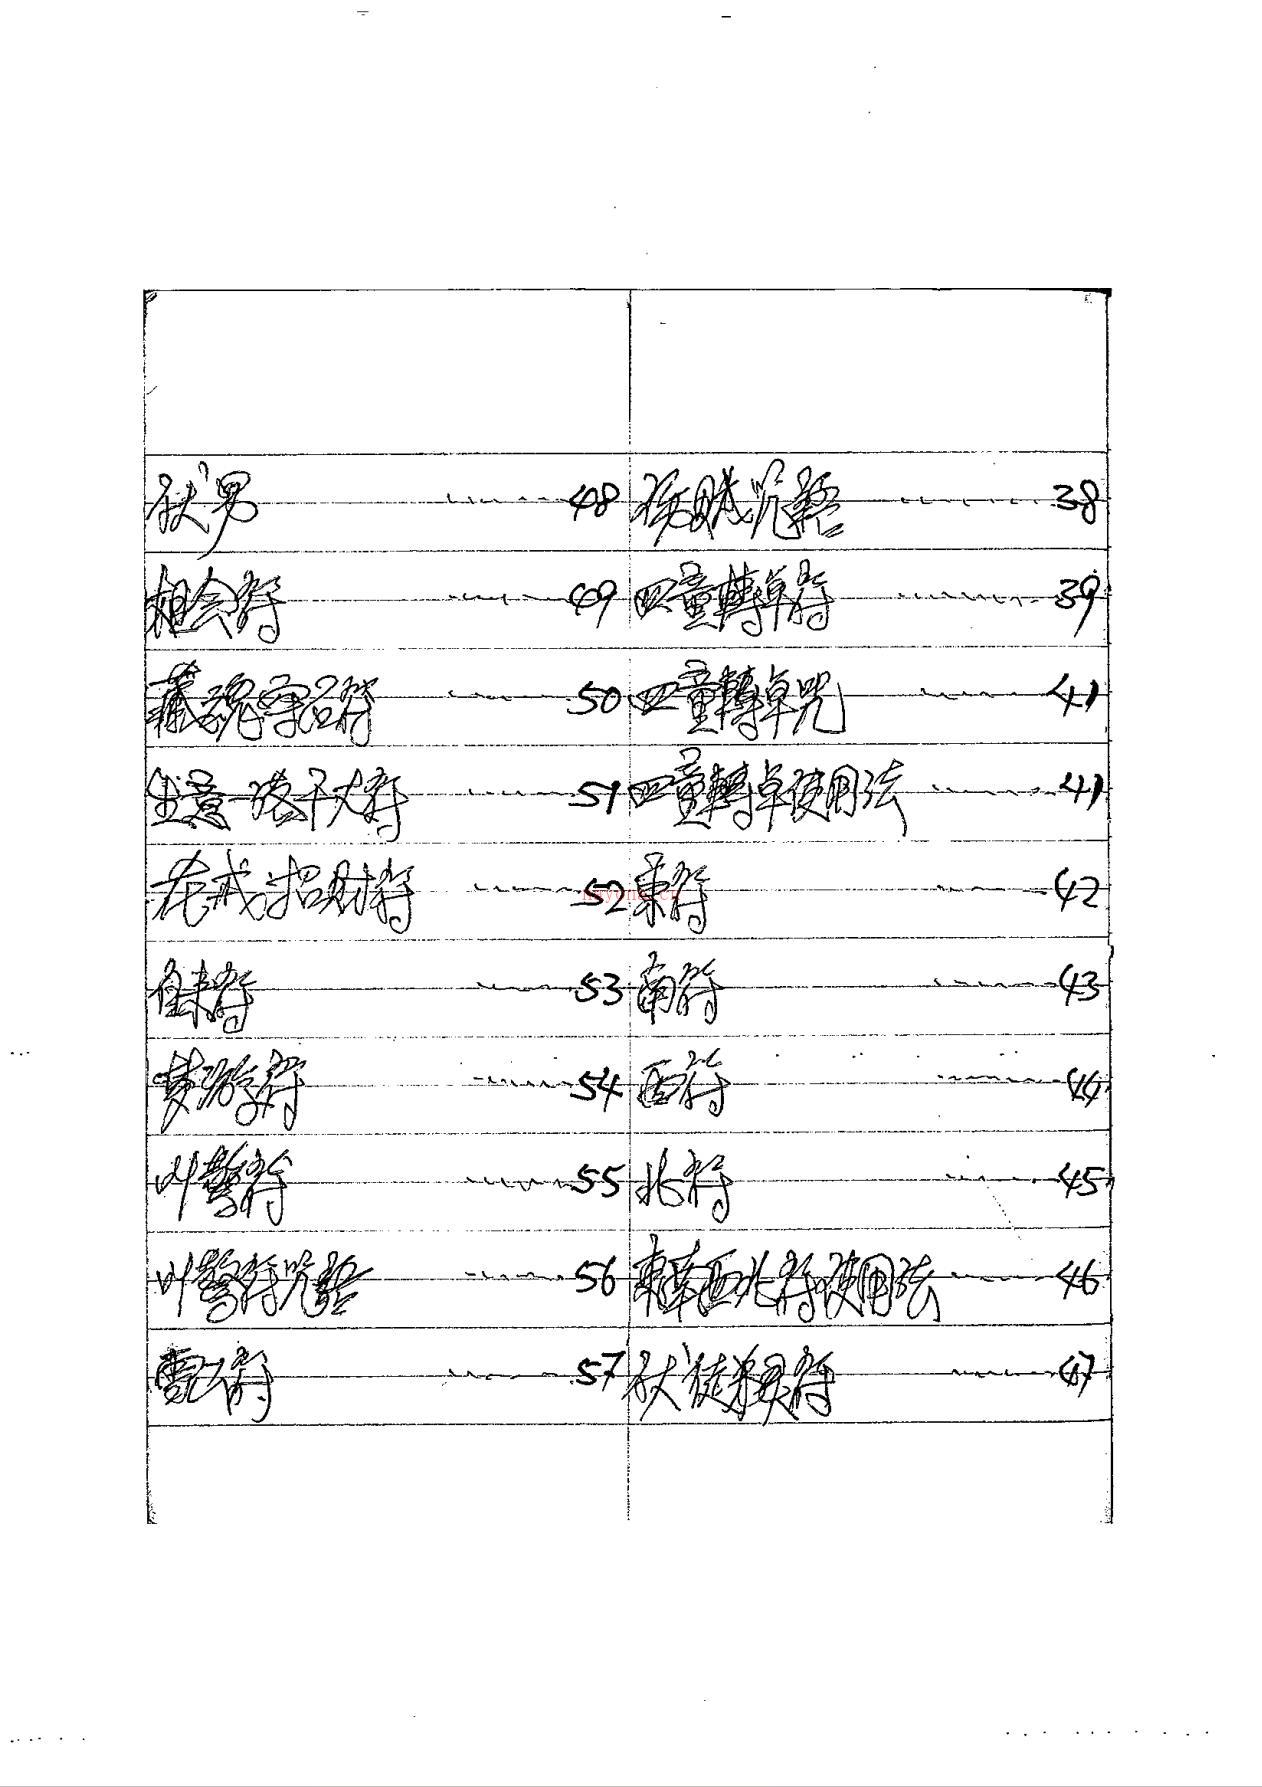 伏男 48
相会符 49
藏魂 召符 50
生意一落千丈符 51
花戒招財符 52
自来符 53
梦游符 54
叫驚符 55
叫驚符咒語 56
符 57
咒語 38
四童轉卓符 39
四童轉卓咒 41
四童轉卓使用法 41
東符 42
南符 43
西符 44
北符 45
東南西北符使用法 46
伏徒 符 47